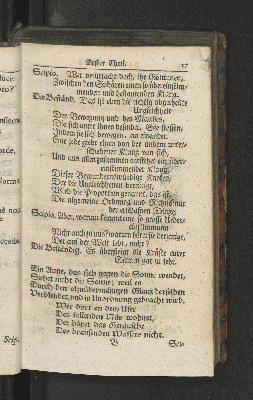 Erster Theil. 17
Scipio. Wer verursacht doch, ihr Göttinnen,
Zwischen den Sphären einen so
und Klang.
Die Beständ. Das ist eben die richtig abgetheilte
Ungleichheit
Der Bewegung und des Grades,
Die sich unter ihnen befindet. Sie stossen,
Indem sie sich bewegen, an einander.
Eine jede giebt einen von der andern unter-
schiedenen Klang von sich,
Und aus allen zusammen entstehet ein über-
einstimmender Klang.
Dieser Bewundernswürdige Knoten,
Der die Ungleichheiten vereiniget,
Wird die Proportion genannt, das ist,
Die allgemeine Ordnung und Richtschnur
der erschaffnen Dinge.
Scipio. Aber, warum kommt eine so grosse Ueber-
einstimmung
Nicht auch zu uns? warum höret sie derjenige,
Der auf der Welt lebt, nicht?
Die Beständig. Es übersteigt die Kräfte eurer
Sinnen gar zu sehr.
Ein Auge, das sich gegen die Sonne wendet,
Siehet nicht die Sonne, weil es
Durch den allzuübermäßigen Glanz derselben
Verblendet, und in Unordnung gebracht wird.
Wer dort an dem Ufer
Des fallenden Nils wohnet,
Der höret das Geräusche
Des brausenden Wassers nicht.
B Sci-